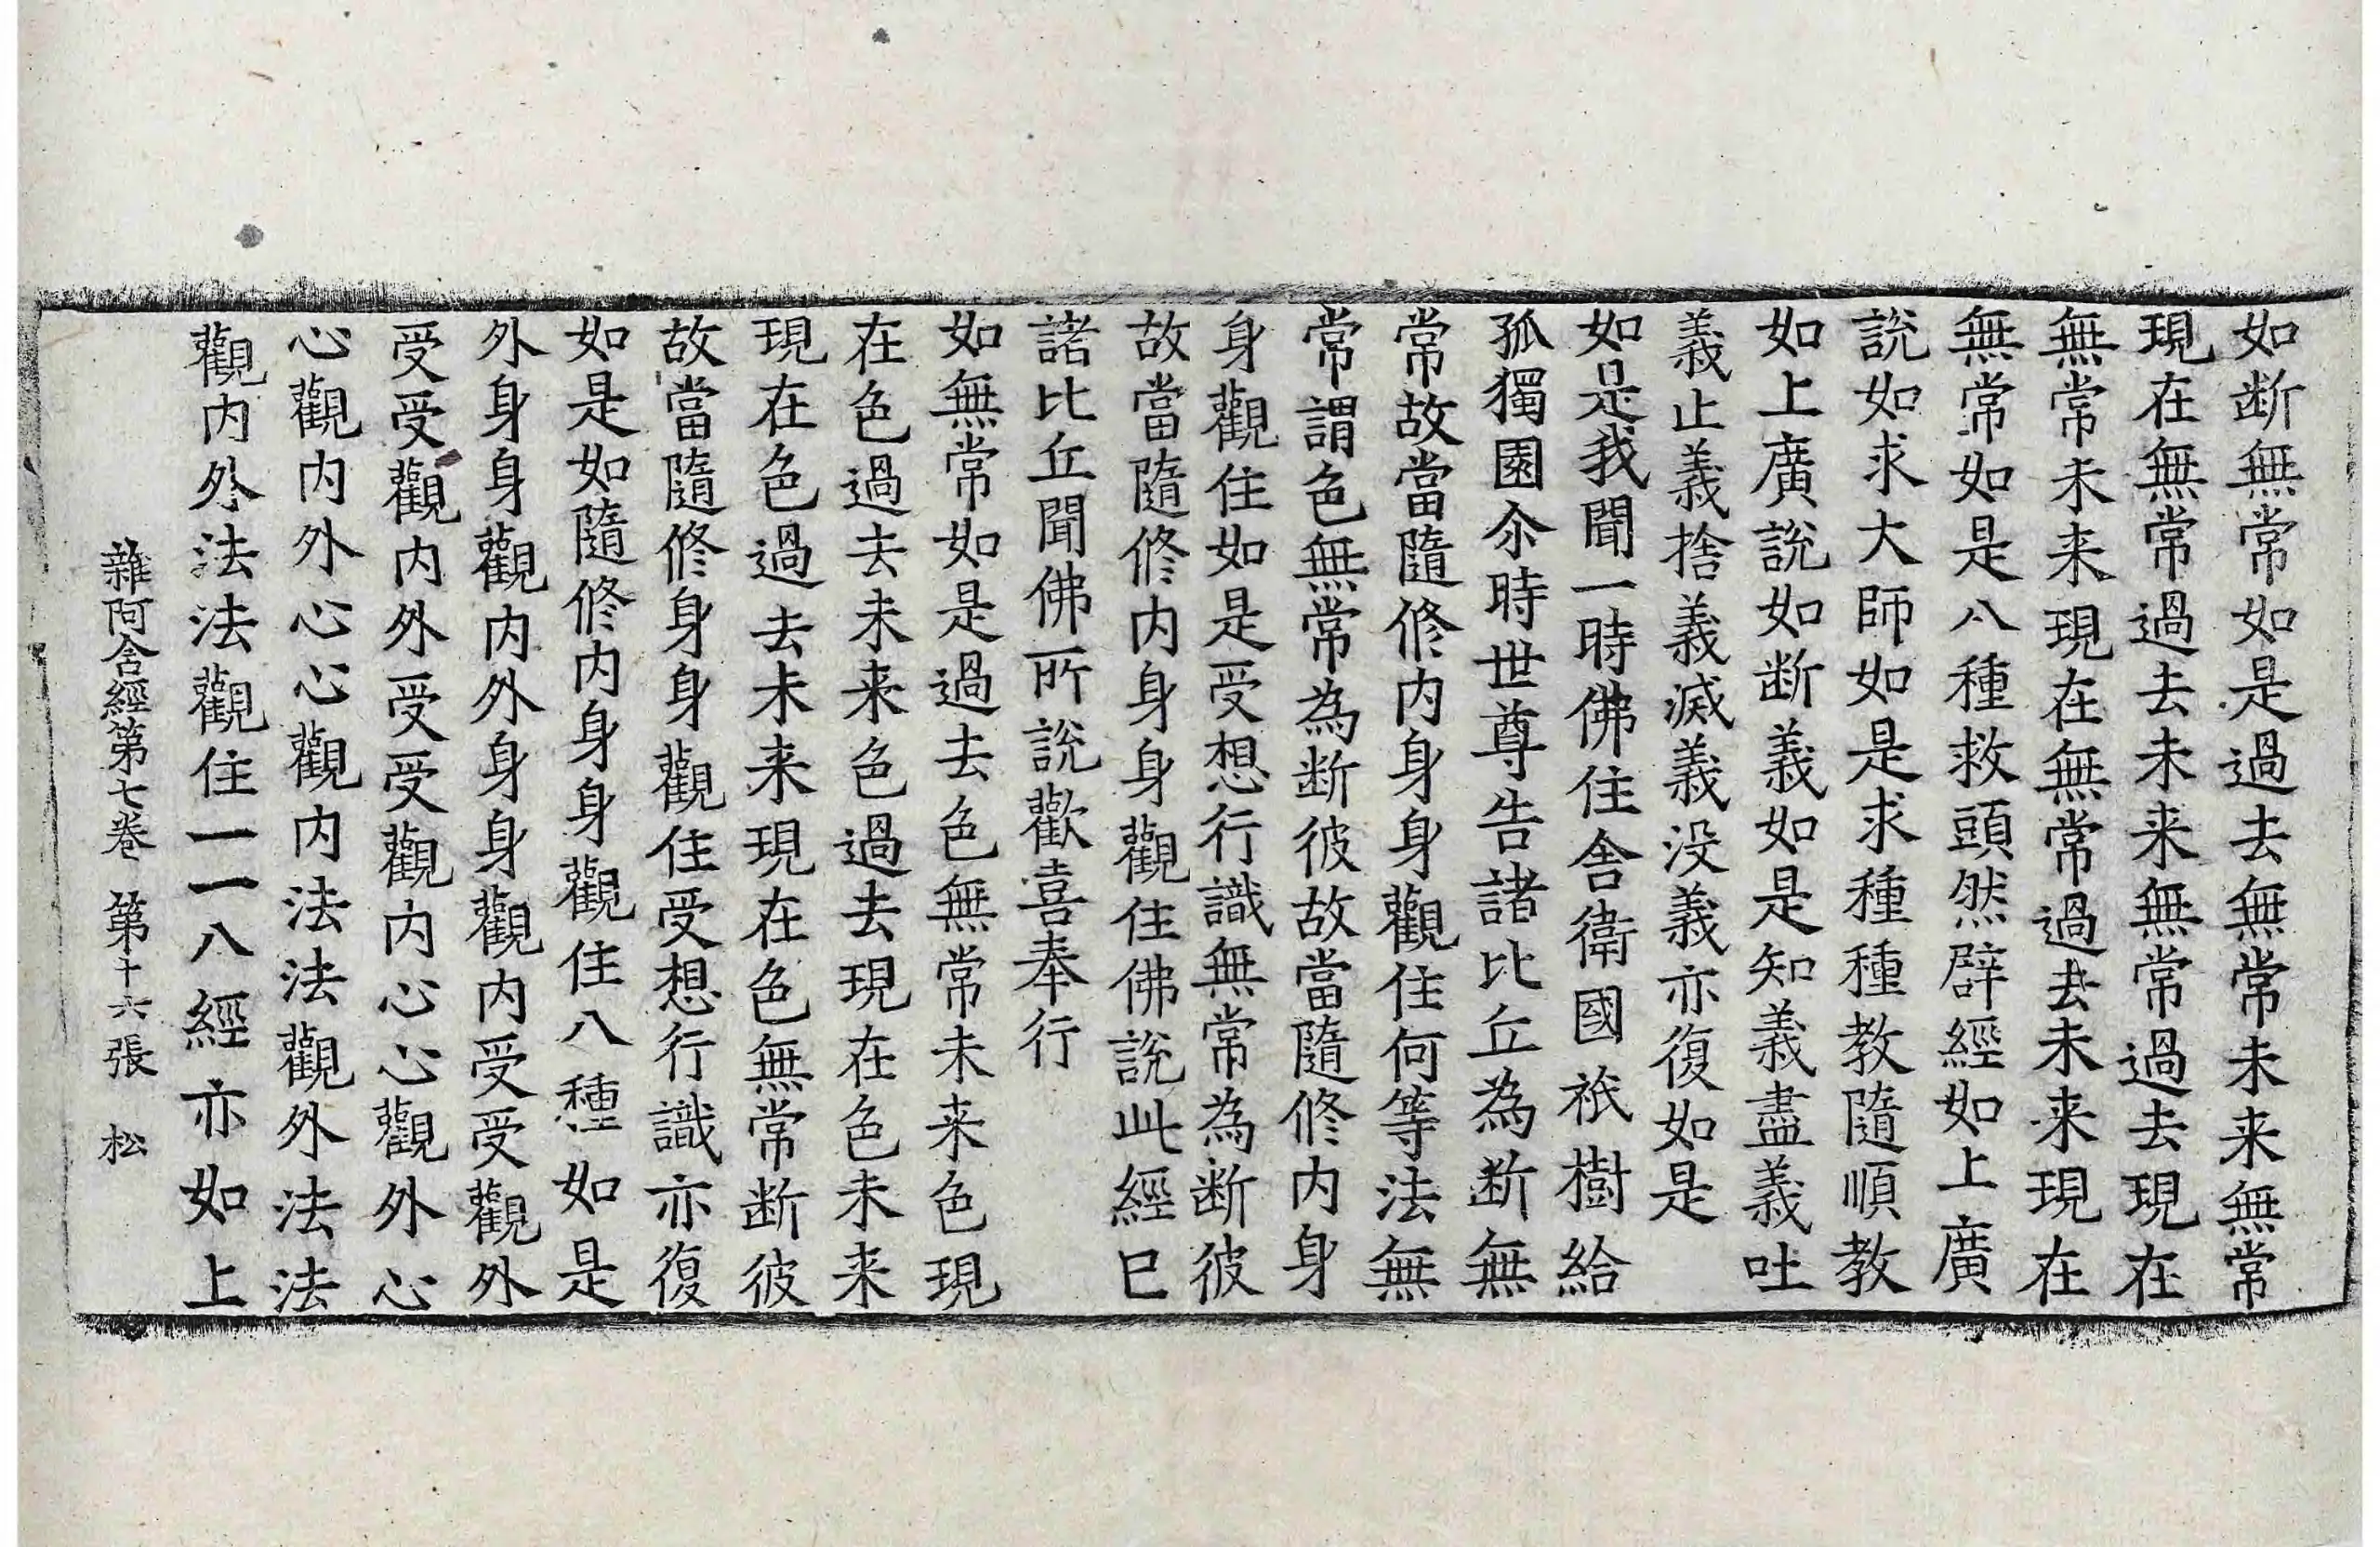 如断無常如是過去無常未来無常
現在無常過去未来無常過去現在
無常未来現在無常過去未来現在
無常如是八種救頭然辟經如上廣
說如求大師如是求種種教隨順教
如上廣說如断義如是知義盡義吐
義止義捨義滅義没義亦復如是
如是我聞一時佛住舍衛國祇樹給
孤獨園尒時世尊告諸比丘為断無
常故當隨修内身身觀住何等法無
常謂色無常為断彼故當隨修内身
身觀住如是受想行識無常為断彼
故當隨修内身身觀住佛說此經已
諸比丘聞佛所說歡喜奉行
如無常如是過去色無常未来色現
在色過去未来色過去現在色未来
現在色過去未来現在色無常断彼
故當隨修身身觀住受想行識亦復
如是如隨修内身身觀住八種如是
外身身觀内外身身觀内受受觀外
受受觀内外受受觀内心心觀外心
心觀内外心心觀内法法觀外法法
觀内外法法觀住一一八經亦如上
雜阿含經第七卷 第十六張 松